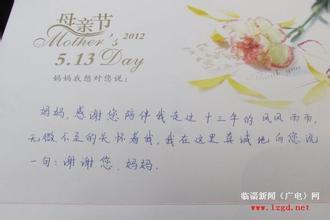 母亲节
Mother's 2012
5.13 Day
妈妈我想对您说：
妈妈，感谢您陪伴我走过十三年的风风雨雨，
无微不至的关怀着我，我在这里真诚地向您说
一句：谢谢您，妈妈。
临淄新闻（广电）网
www.lzgd.net